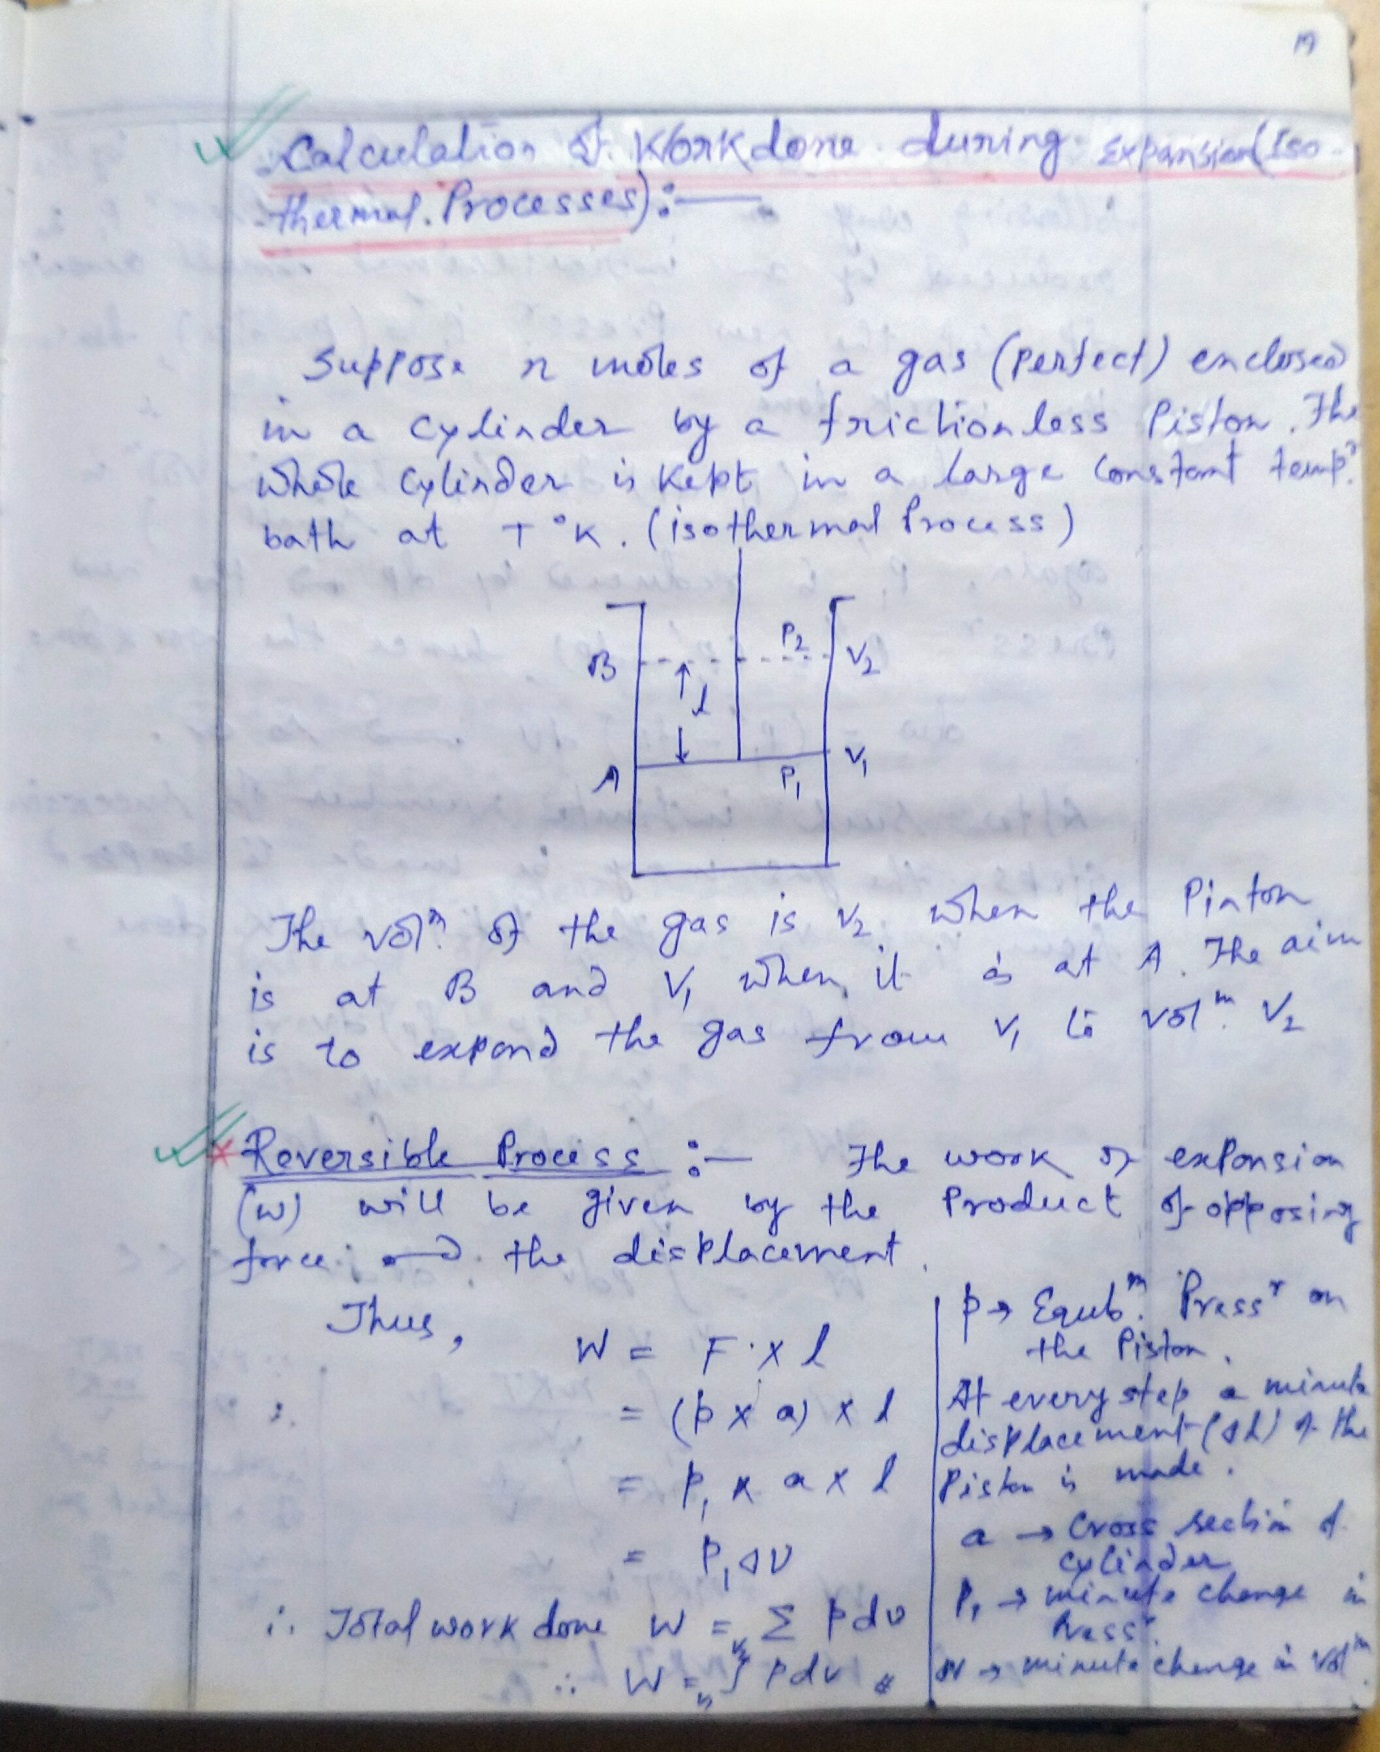 19
Calculation of Workdone during Expansion (Iso-
thermal Processes) :—
Suppose n moles of a gas (Perfect) enclosed
in a cylinder by a frictionless Piston. The
whole cylinder is kept in a large constant tempr.
bath at T °K. (isothermal Process)
B P2 V2
l
A P1 V1
The volm. of the gas is V2 when the Pinton
is at B and V1 when it is at A. The aim
is to expand the gas from V1 to volm. V2
* Reversible Process :— The work of expansion
(W) will be given by the Product of opposing
force and the displacement.
Thus,
W = F × l
= (p × a) × l
= P1 × a × l
= P1 Δv
∴ Total work done W = Σ Pdv
∴ W = v1∫v2 Pdv
p → Equbm. Pressr on
the Piston.
At every step a minute
displacement (Δl) of the
Piston is made.
a → Cross section of
cylinder
P1 → minute change in
Pressr.
Δv → minute change in volm.